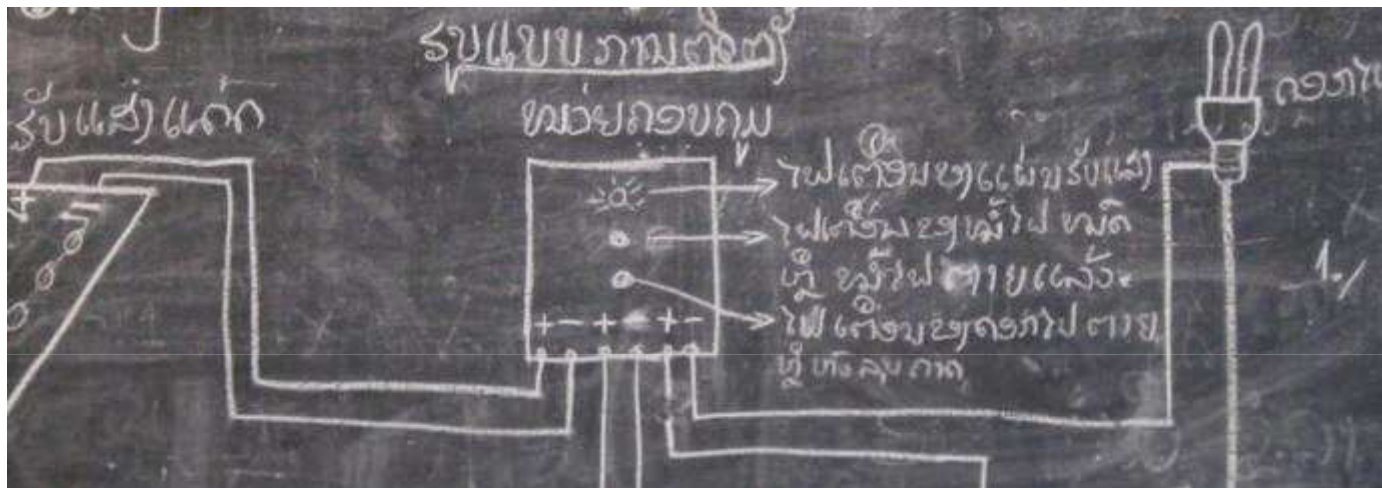 ຮູບແບບການຕິດຕັ້ງ
ຮັບແສງແດດ
ໜ່ວຍຄອບຄຸມ
ດອກໄຟ
ໄຟເຕືອນຂອງແຜ່ນຮັບແສງ
ໄຟເຕືອນຂອງໝໍ້ໄຟ ໝົດ
ຫຼື ໝໍ້ໄຟຕາຍແລ້ວ
ໄຟເຕືອນຂອງດອກໄຟຕາຍ
ຫຼື ຫລຸບ ຂາດ
+ -
+ - + - + -
1./